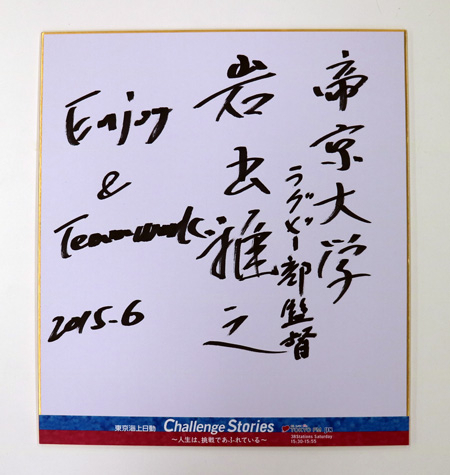 帝京大学
ラグビー部監督
岩出雅之
Enjoy
&
Teamwork.
2015-6
東京海上日動 Challenge Stories
~人生は、挑戦であふれている~
TOKYO FM
38Stations Saturday
15:30-15:55